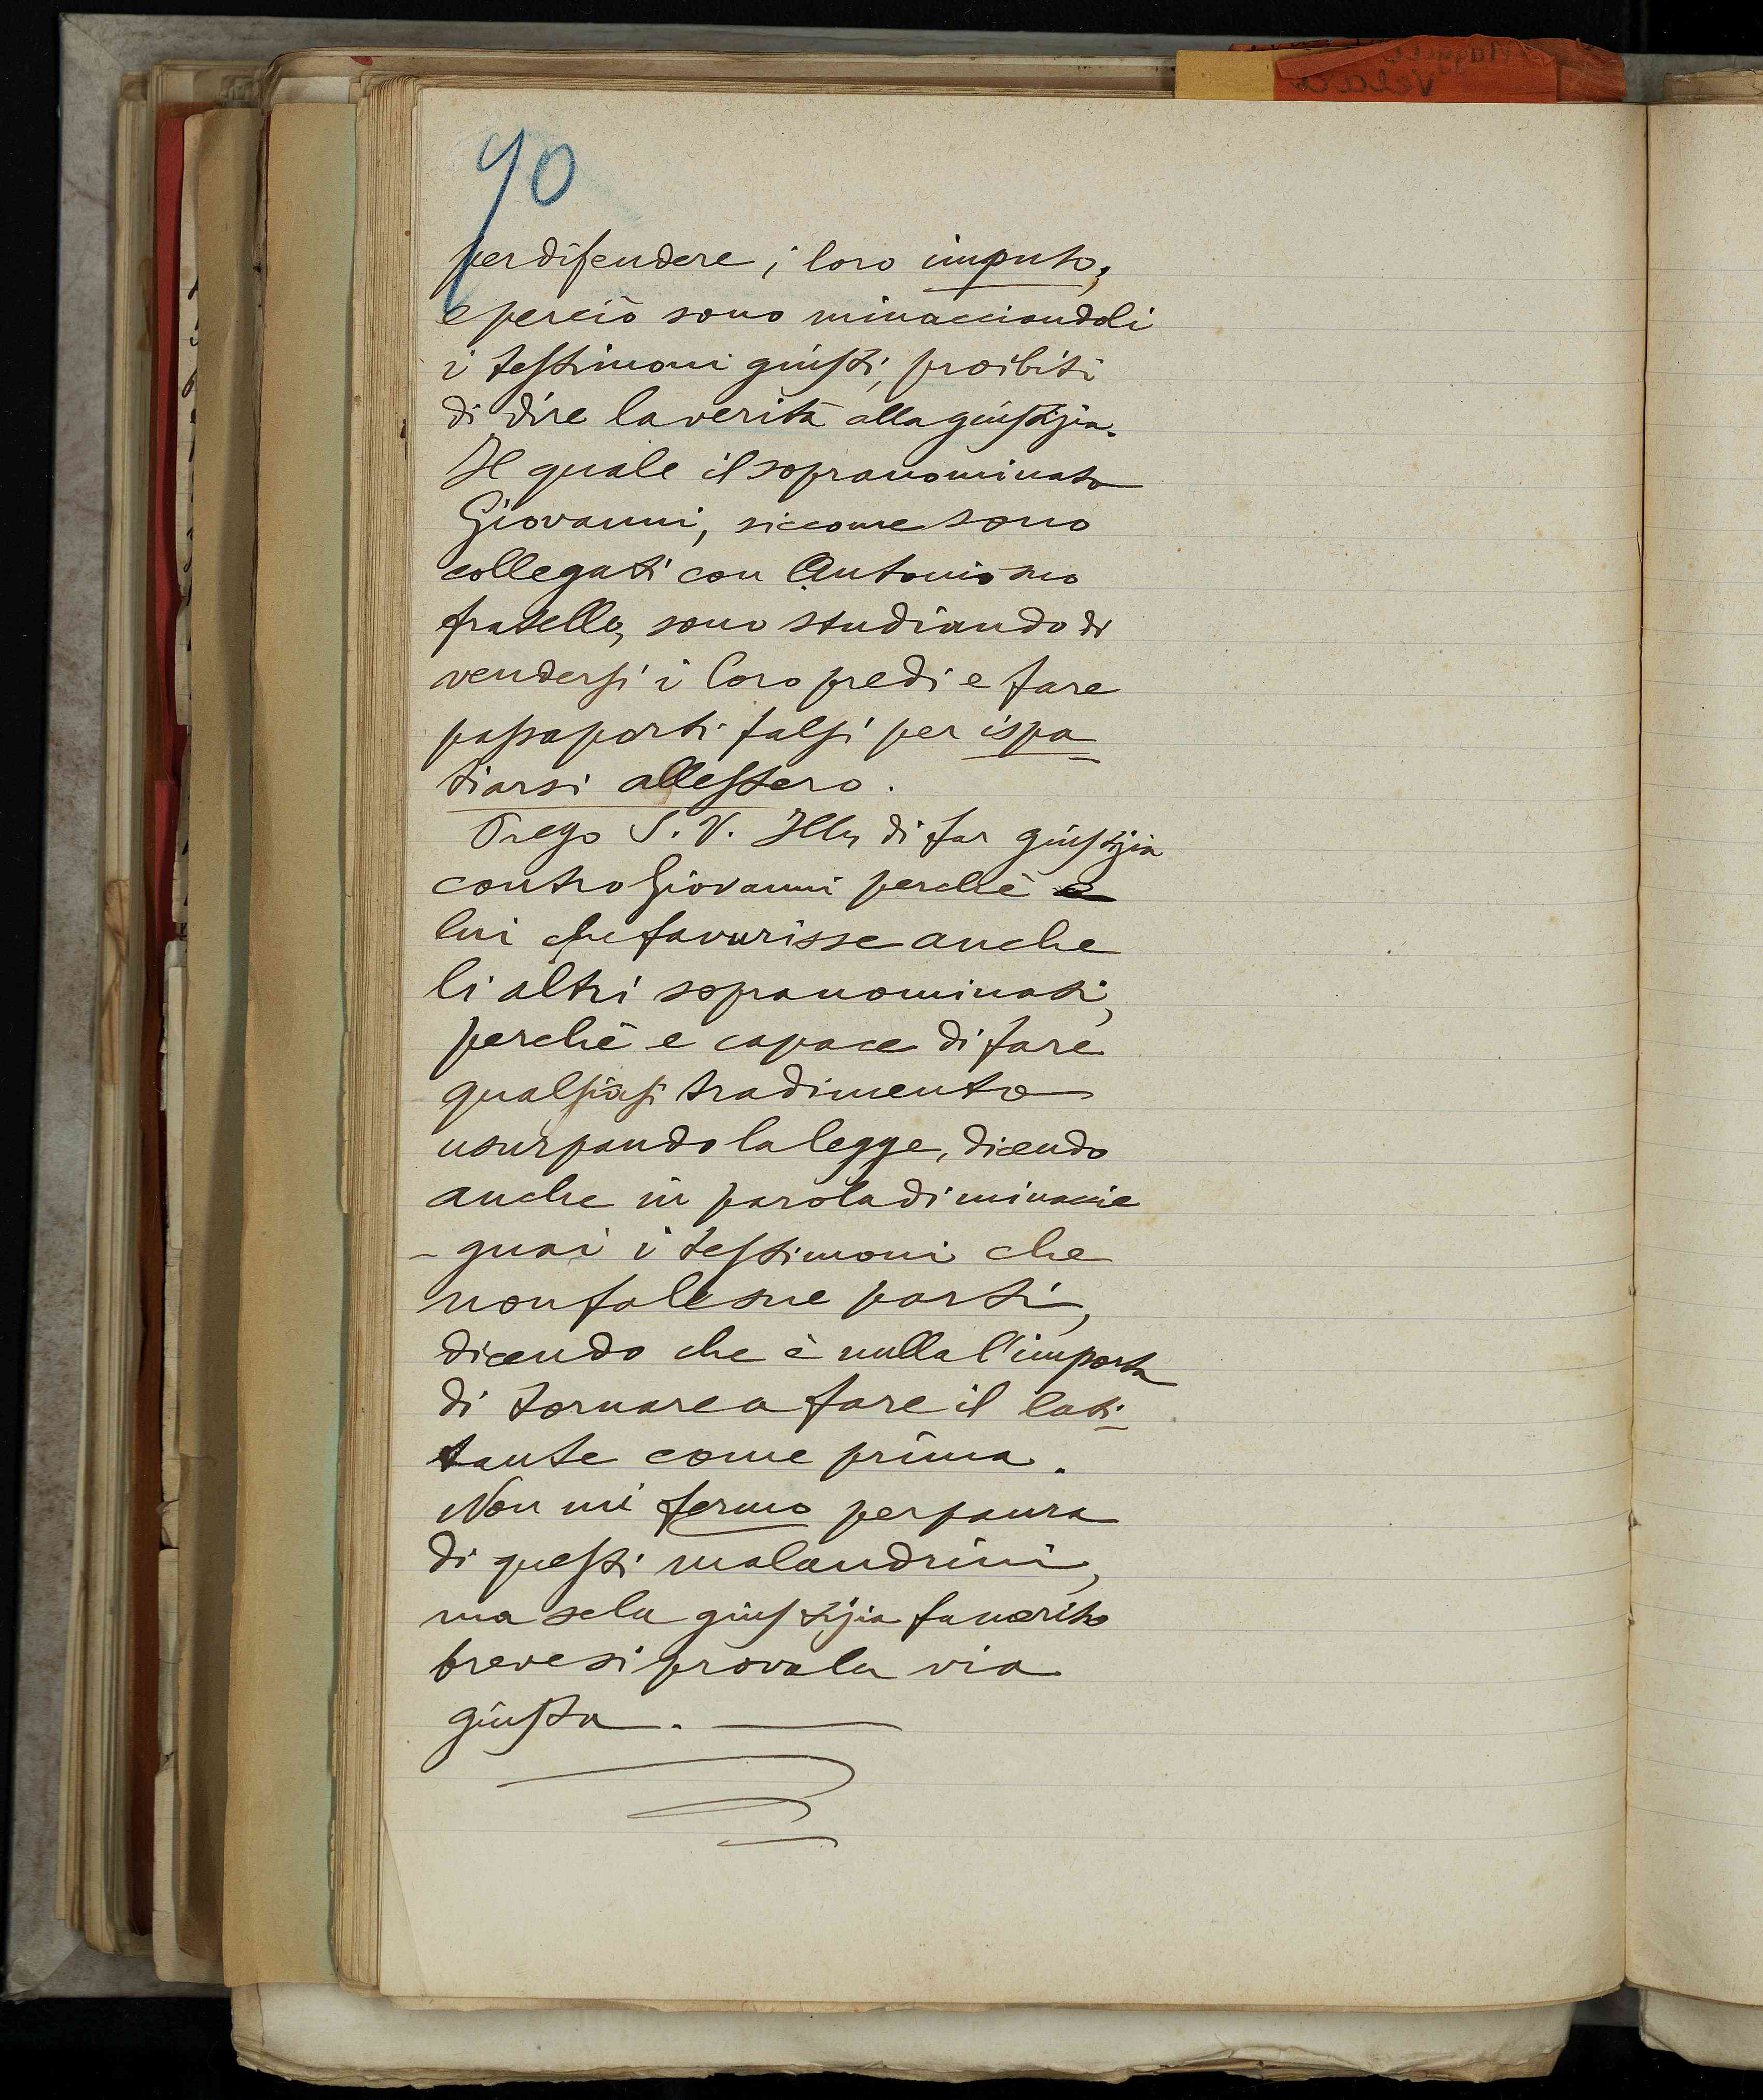 90
per difendere i loro imputo,
e perciò sono minacciandoli
i testimoni giusti, proibiti
di dire la verità alla giustizia.
Il quale il sopranominato
Giovanni, siccome sono
collegati con Antonio suo
fratello, sono studiando di
vendersi i loro predi e fare
passaporti falsi per ispa-
tiarsi allestero.
Prego S. V. Illa di far giustizia
contro Giovanni perchè e
lui che favurisse anche
li altri sopranominati,
perchè e capace di fare
qualsiasi tradimento
usurpando la legge, dicendo
anche in parola di minaccie
- guai i testimoni che
non fa le sue parti,
dicendo che è nulla l'importa
di tornare a fare il lati-
tante come prima.
Non mi fermo per paura
di questi malandrini,
ma se la giustizia fa merito
breve si prova la via
giusta.